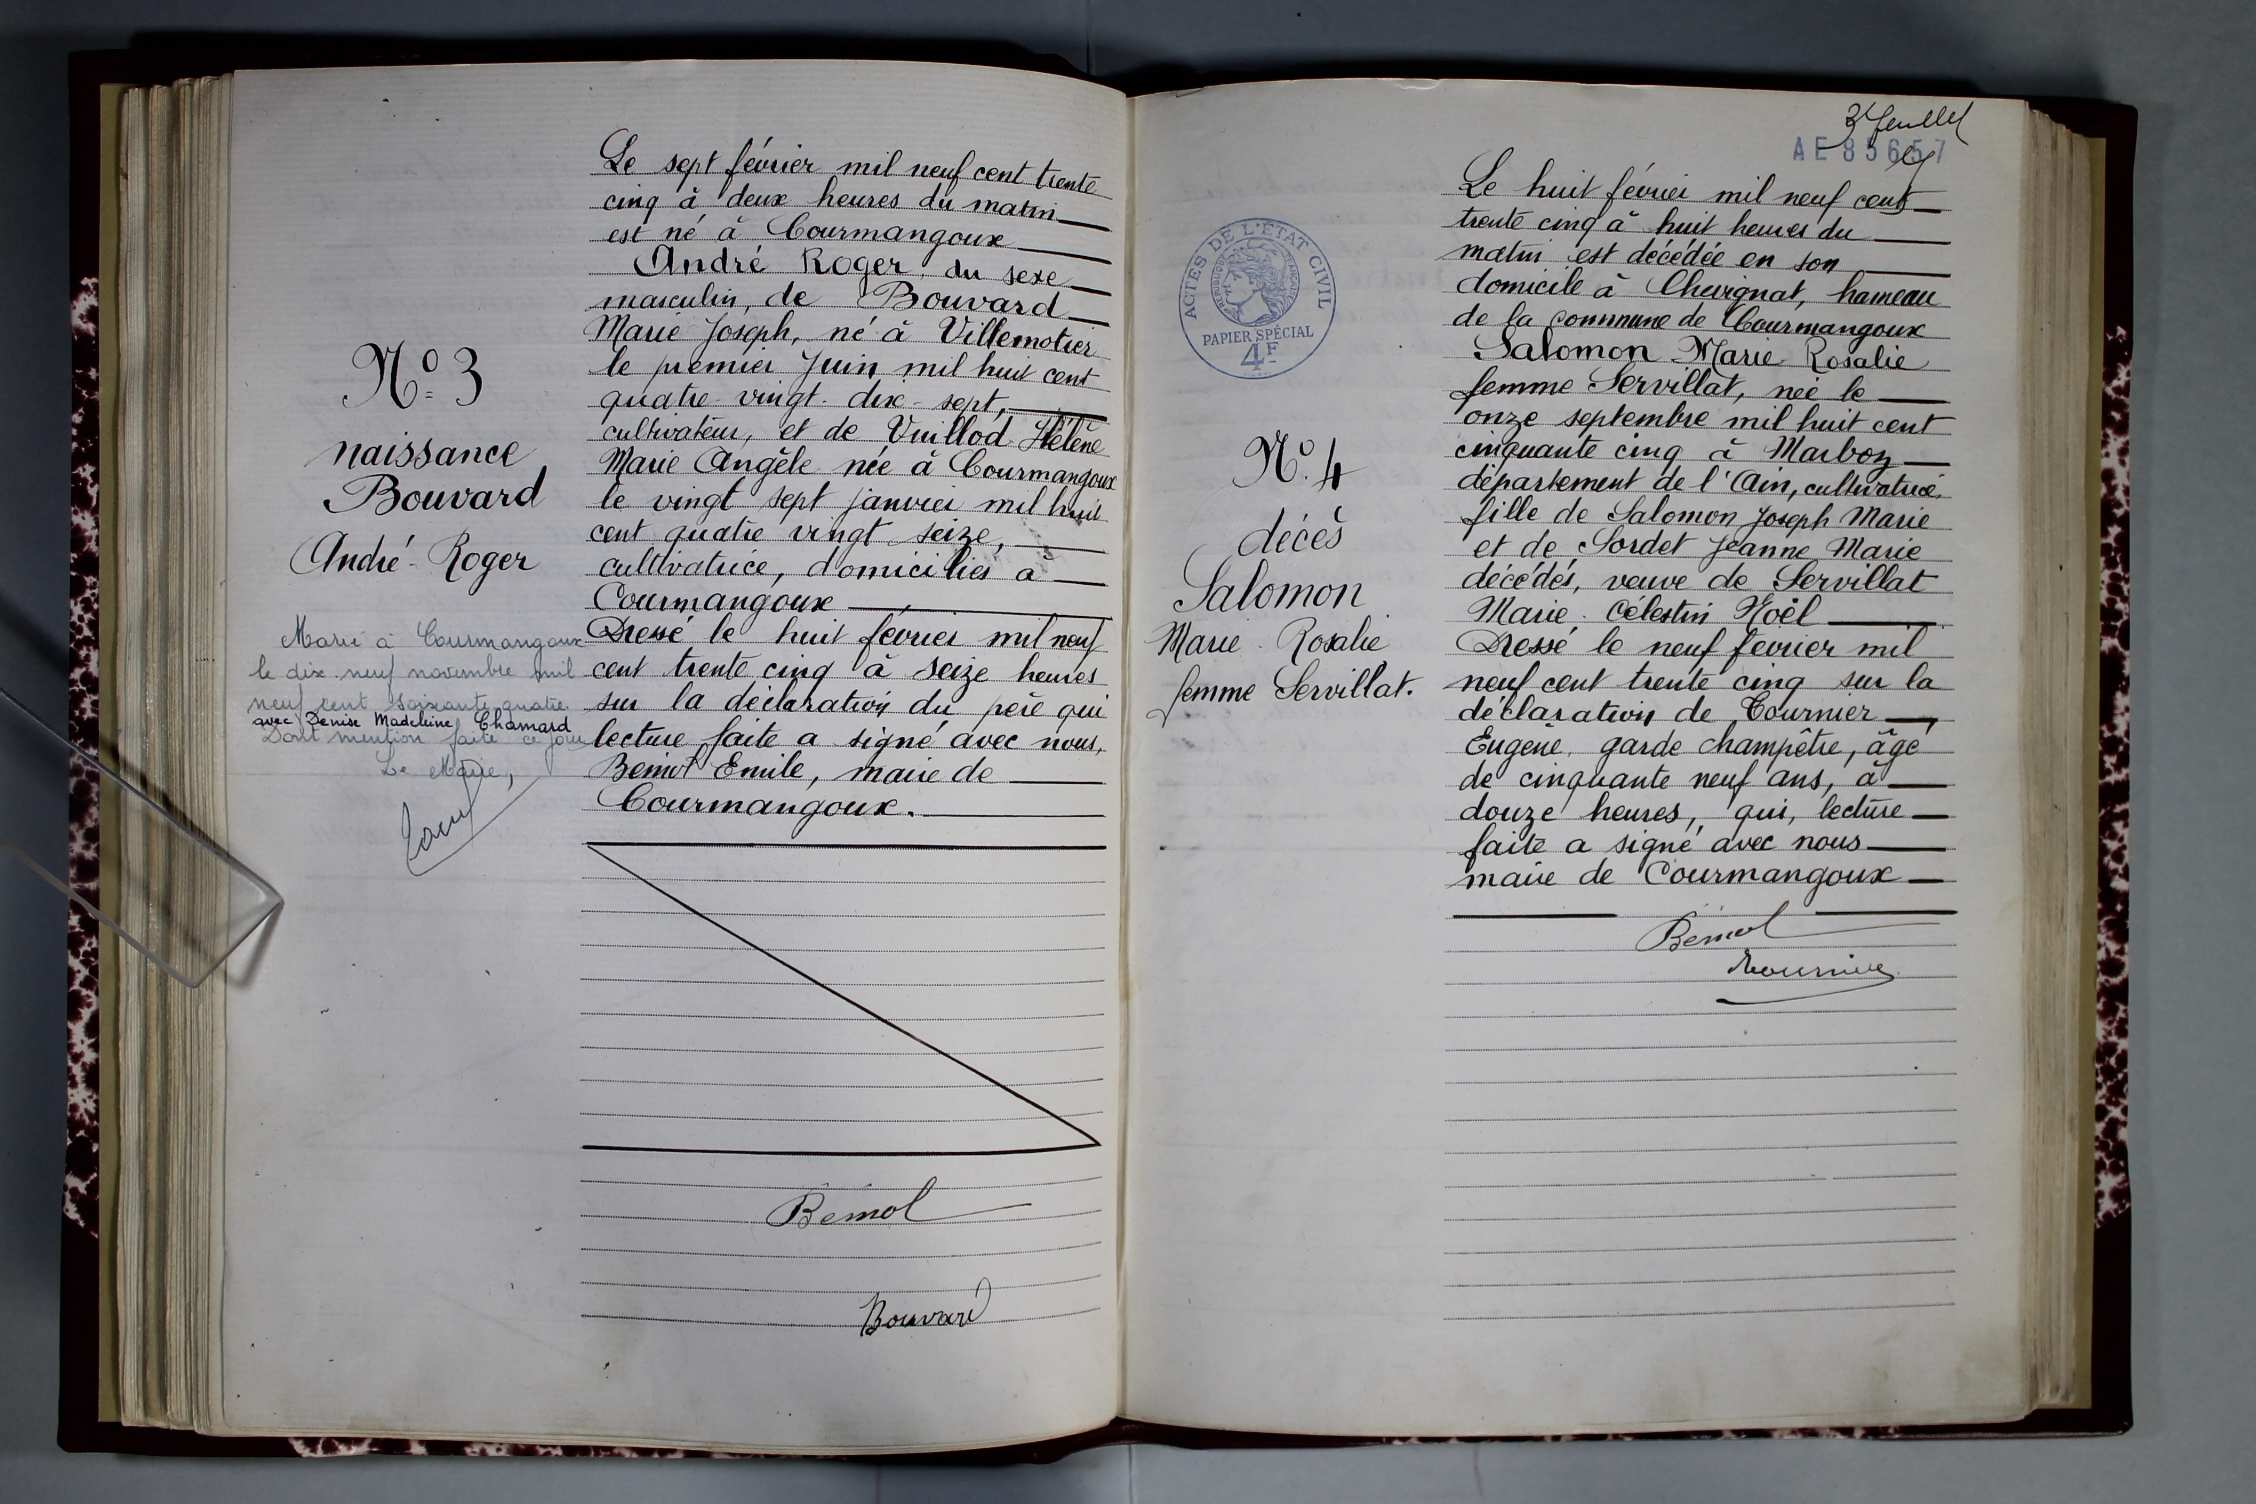 N° 3
naissance
Bouvard
André-Roger
Marié à Courmangoux
le dix neuf novembre mil
neuf cent soixante quatre
avec Denise Madeleine Chamard
Dont mention faite ce jour
Le Maire,
Le sept février mil neuf cent trente
cinq à deux heures du matin
est né à Courmangoux
André Roger, du sexe
masculin, de Bouvard
Marie Joseph, né à Villemotier
le premier Juin mil huit cent
quatre-vingt-dix-sept,
cultivateur, et de Vuillod Hélène
Marie Angèle née à Courmangoux
le vingt sept janvier mil huit
cent quatre vingt seize,
cultivatrice, domiciliés à
Courmangoux
Dressé le huit février mil neuf
cent trente cinq à seize heures
sur la déclaration du père qui
lecture faite a signé avec nous,
Bémol Emile, maire de
Courmangoux.
Bémol
Bouvard
3e feuillet
AE 85657
ACTES DE L'ÉTAT CIVIL
RÉPUBLIQUE FRANÇAISE
PAPIER SPÉCIAL
4F
N° 4
décès
Salomon
Marie-Rosalie
femme Servillat.
Le huit février mil neuf cent
trente cinq à huit heures du
matin est décédée en son
domicile à Chevignat, hameau
de la commune de Courmangoux
Salomon Marie-Rosalie
femme Servillat, née le
onze septembre mil huit cent
cinquante cinq à Marboz
département de l'Ain, cultivatrice,
fille de Salomon Joseph Marie
et de Sordet Jeanne Marie
décédés, veuve de Servillat
Marie Célestin Noël
Dressé le neuf février mil
neuf cent trente cinq sur la
déclaration de Tournier
Eugène, garde champêtre, âgé
de cinquante neuf ans, à
douze heures, qui, lecture
faite a signé avec nous
maire de Courmangoux
Bémol
Tournier